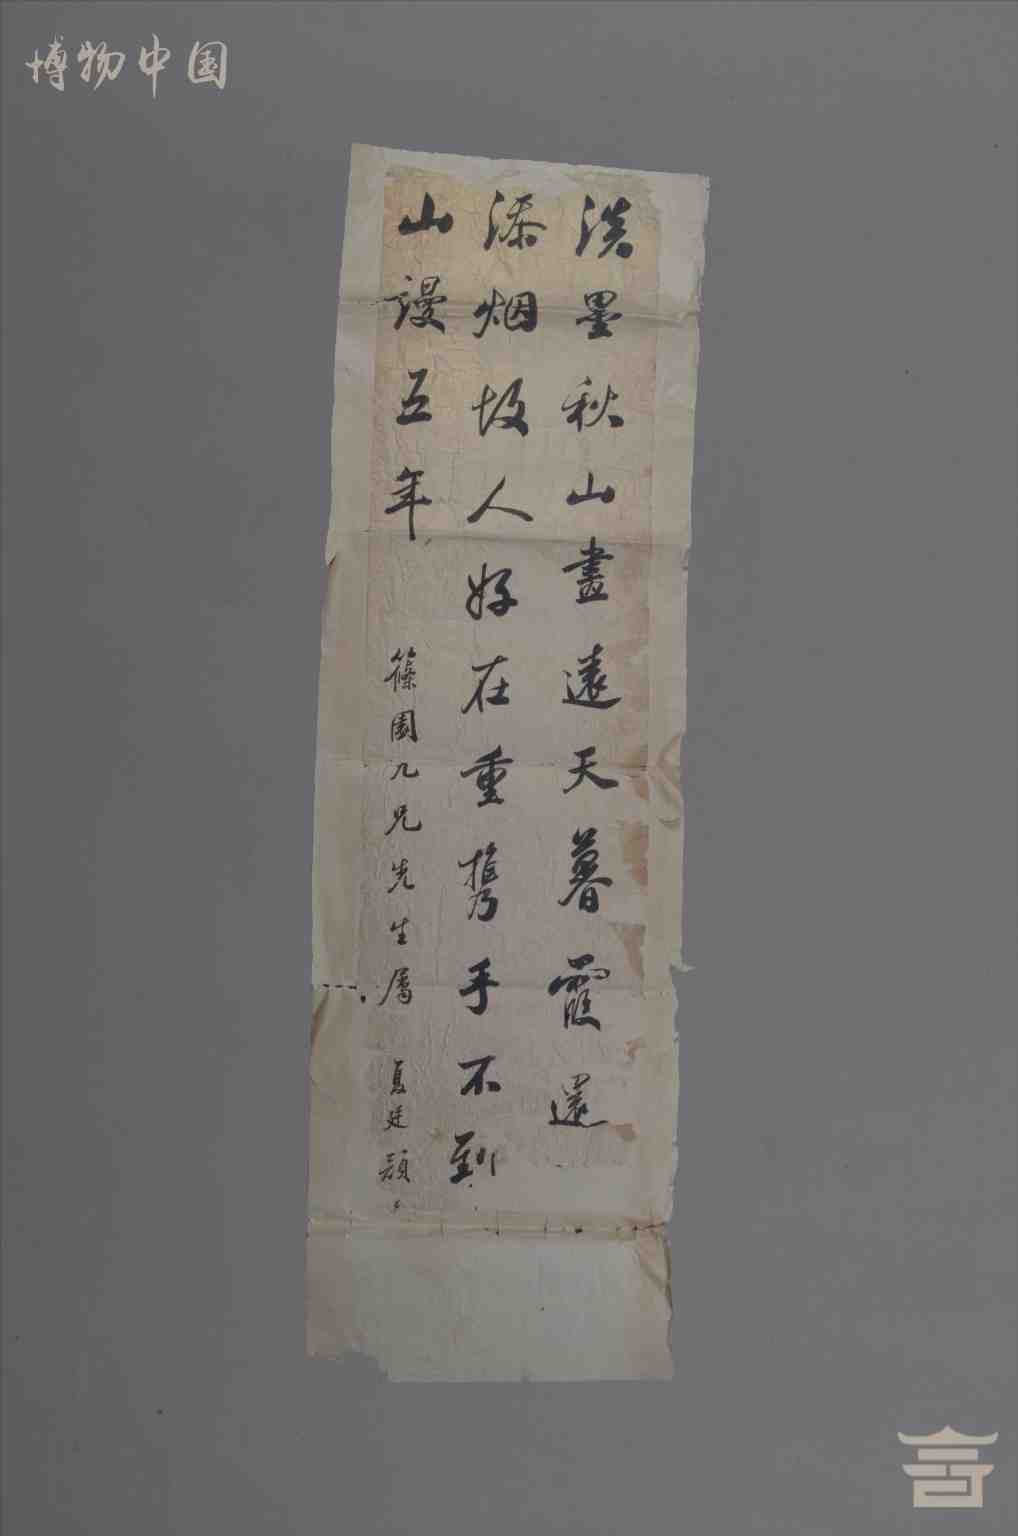 博物中国
淡墨秋山畫遠天暮霞還
添烟故人好在重携手不到
山謾五年
篠園九兄先生屬 夏廷頴